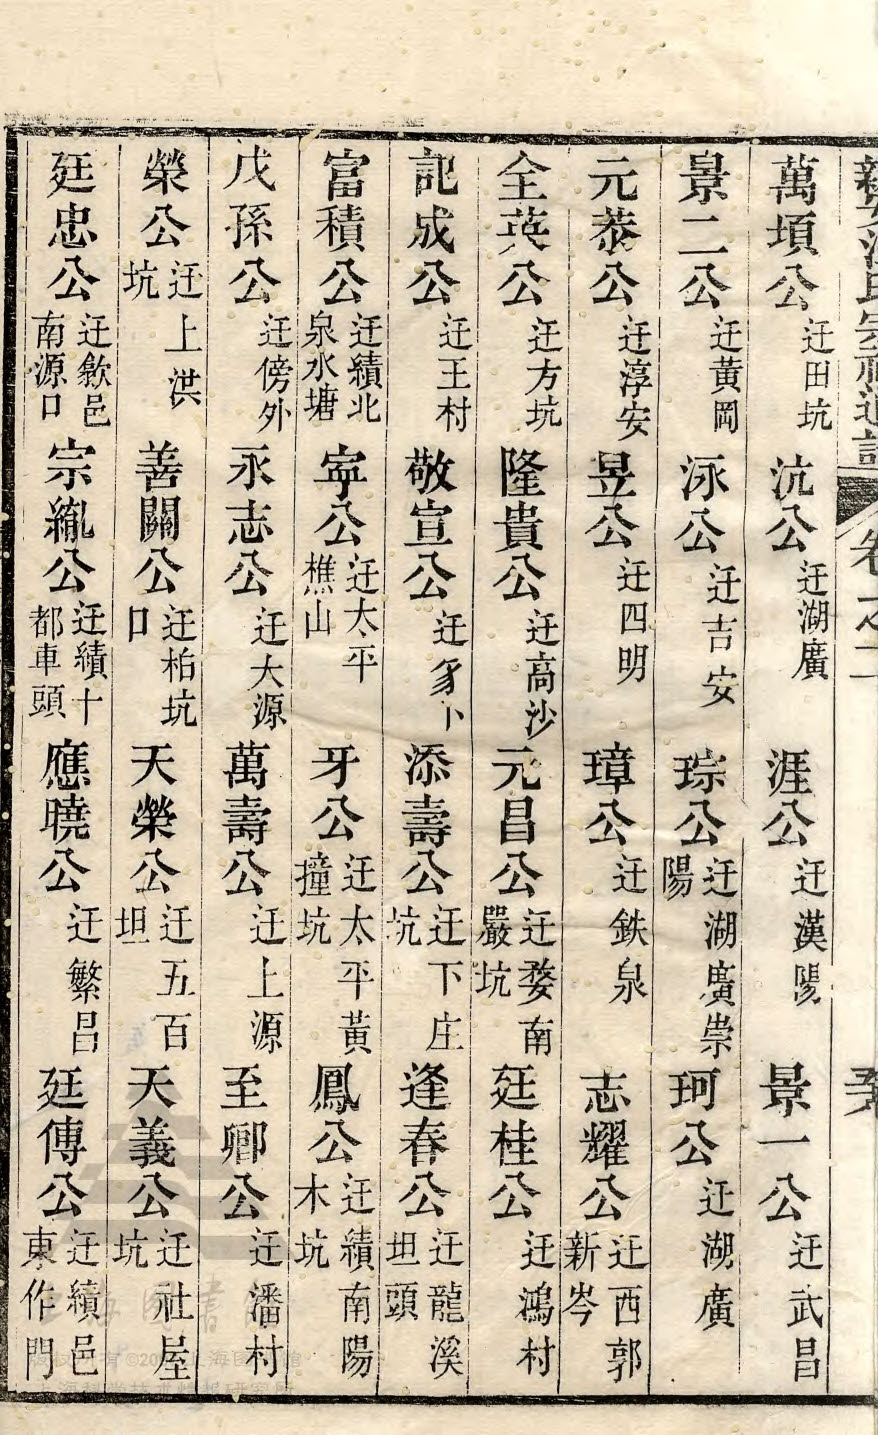 卷之二
萬頃公 迁田坑 沆公 迁湖廣 涯公 迁漢陽 景一公 迁武昌
景二公 迁黃岡 泳公 迁吉安 琮公 迁湖廣崇陽 珂公 迁湖廣
元恭公 迁淳安 昱公 迁四明 璋公 迁鉄泉 志耀公 迁西郭新岑
全英公 迁方坑 隆貴公 迁高沙 元昌公 迁婺南嚴坑 廷桂公 迁鴻村
記成公 迁王村 敬宣公 迁 添壽公 迁下庄坑 逢春公 迁龍溪坦頭
富積公 迁績北泉水塘 寧公 迁太平樵山 牙公 迁太平黃撞坑 鳳公 迁績南陽木坑
戊孫公 迁傍外 永志公 迁大源 萬壽公 迁上源 至卿公 迁潘村
榮公 迁上洪坑 善關公 迁柏坑口 天榮公 迁五百坦 天義公 迁社屋坑
廷忠公 迁歙邑南源口 宗胤公 迁績十都車頭 應曉公 迁繁昌 廷傳公 迁績邑東作門